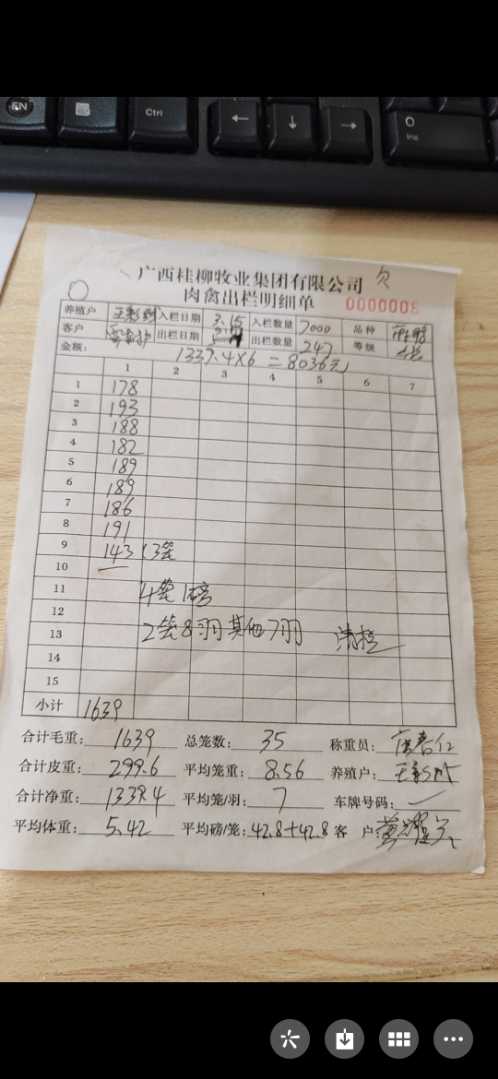 EN
Ctrl
←
↓
→
0
Ins
广西桂柳牧业集团有限公司 欠
肉禽出栏明细单 0000008
养殖户 入栏日期 3.15 入栏数量 7000 品种
客户 出栏日期 出栏数量 247 等级
金额: 1339.4×6=8036元
1 2 3 4 5 6 7
1 178
2 193
3 188
4 182
5 189
6 189
7 186
8 191
9 143 (3笼
10
11 4笼1磅
12
13 2笼8羽其他7羽 清栏
14
15
小计 1639
合计毛重: 1639 总笼数: 35 称重员:
合计皮重: 299.6 平均笼重: 8.56 养殖户:
合计净重: 1339.4 平均笼/羽: 7 车牌号码: 一
平均体重: 5.42 平均磅/笼: 42.8+42.8 客 户